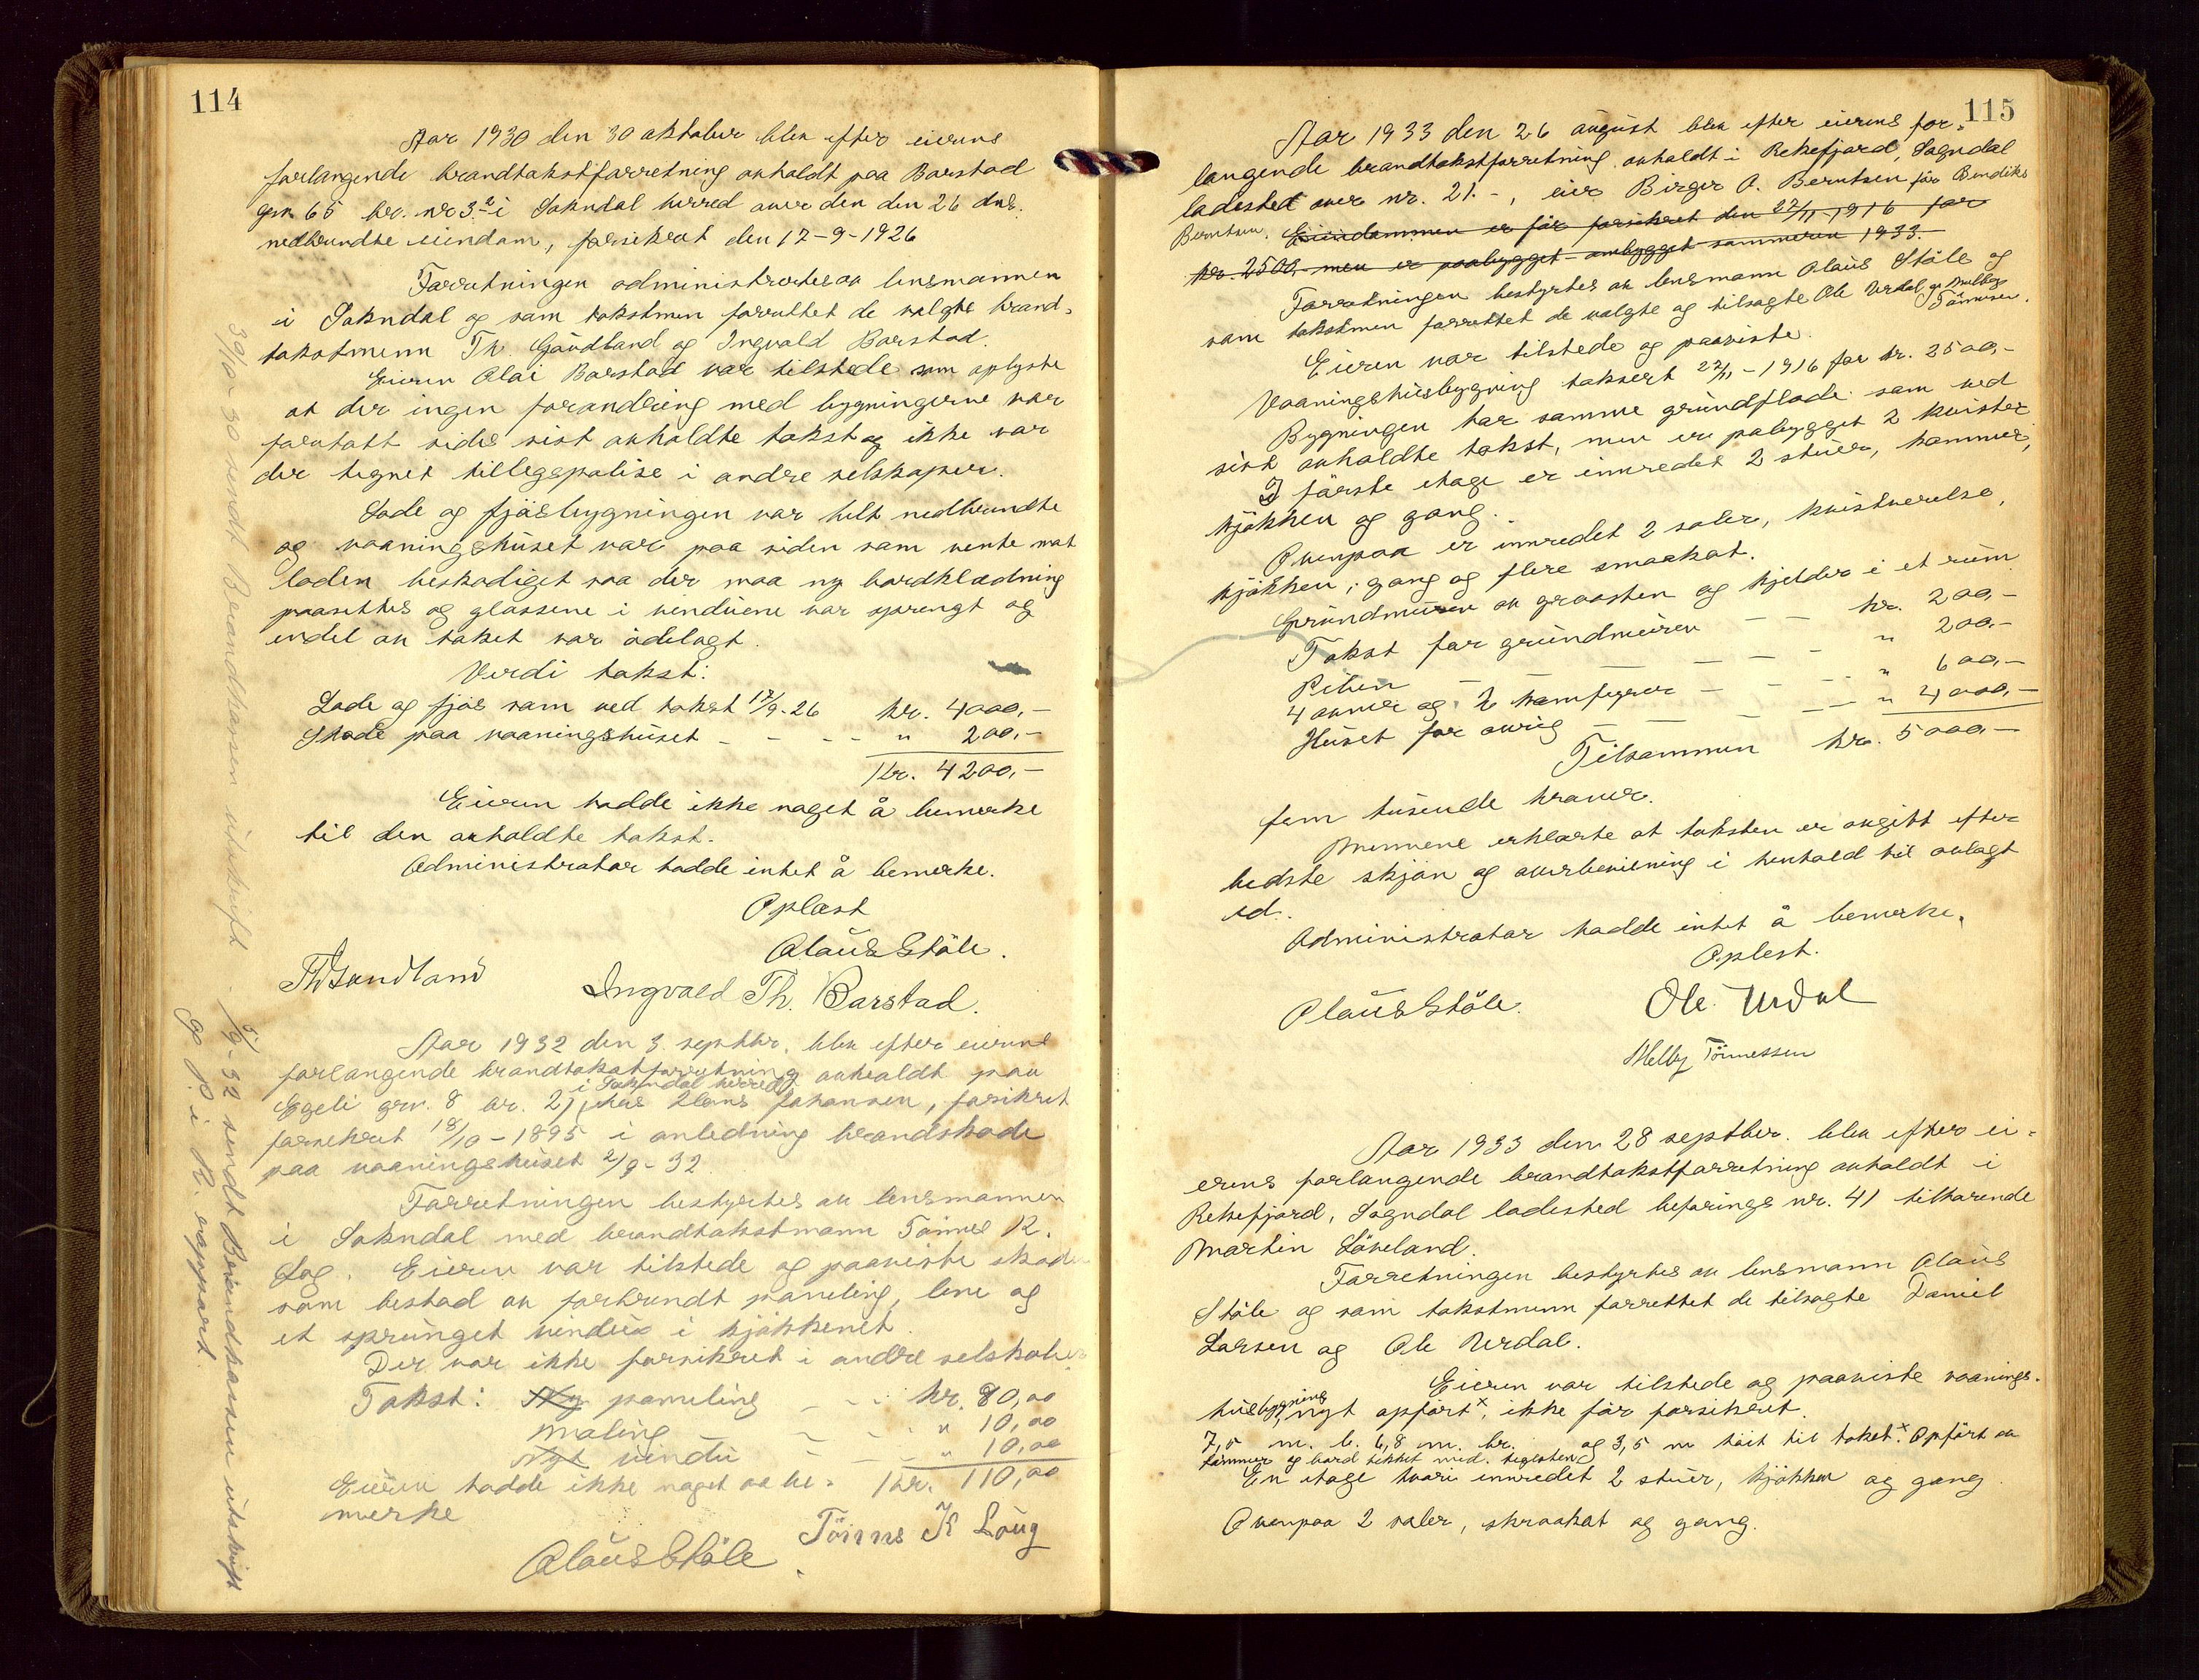 114
Aar 1930 den 30 oktober blev efter eierens
forlangende brandtakstforretning avholdt paa Barstad
grn 65 br. nr 3.² i Sokndal herred over den den 26 dns.
nedbrundte eiendom, forsikret den 17-9-1926
Forretningen administrertes av lensmannen
i Sokndal og som takstmen forrettet de valgte brand-
takstmenn Th. Gaudland og Ingvald Barstad.
Eieren Olai Barstad var tilstede som oplyste
at der ingen forandring med bygningerne var
foretatt siden sist avholdte takst og ikke var
der tegnet tillegspolise i andre selskaper.
Lade og fjösbygningen var helt nedbrundte
og vaaningshuset var paa siden som vente mot
loden beskadiget saa der maa ny bordklædning
paasettes og glassene i vinduene var sprengt og
endel av taket var ödelagt.
Verdi takst:
Lade og fjös som ved takst 17/9-26 kr. 4000,-
Skade paa vaaningshuset - - - - " 200,-
Kr. 4200,-
Eieren hadde ikke noget å bemerke
til den avholdte takst.
Administrator hadde intet å bemerke.
Oplæst
Olaus Stöle.
Th Gaudland Ingvald Th. Barstad.
Aar 1932 den 3. septbr. blev efter eierens
forlangende brandtakstforretning avholdt paa
i Sokndal herred
Egeli grn. 8 br. 2, hos Hans Johansen, forsikret
forsikret 18/10-1895 i anledning brandskade
paa vaaningshuset 2/9-32
Forretningen bestyrtes av lensmannen
i Sokndal med brandtakstmann Tönnes K.
Log. Eieren var tilstede og paaviste skade
som bestod av forbrundt paneling, lem og
et sprunget vindu i kjökkenet.
Der var ikke forsikret i andre selskaber
Takst: Ny paneling - - - kr. 90,00
Maling - - - " 10,00
Nyt vindu - - - " 10,00
Eieren hadde ikke noget aa be- Kr. 110,00
merke
Olaus Stöle Tönnes K Loug
30/10 30 sendt Brandkassen utskrift.
5/9-32 sendt Brandkassen utskrift
og P. i R. rapport.
115
Aar 1933 den 26 august blev efter eierens for-
langende brandtakstforretning avholdt i Rekefjord, Sogndal
ladested over nr. 21.-, eier Birger O. Berntsen för Bendiks
Berntsen. Eiendommen er för forsikret den 27/11-1916 for
kr. 2500,- men er paabygget-ombygget sommeren 1933.-
Forretningen bestyrtes av lensmann Olaus Stöle og
som takstmen forrettet de valgte og tilsagte Ole Urdal og Melby
Tönnesen.
Eieren var tilstede og paaviste.
Vaaningshusbygning taksert 27/11-1916 for kr. 2500,-
Bygningen har samme grundflade som ved
sist avholdte takst, men er pabygget 2 kvister,
I förste etage er innredet 2 stuer, kammer,
kjökken og gang.
Ovenpaa er innredet 2 saler, kvistverelse,
kjökken, gang og flere smaakot.
Grundmuren av graasten og kjelder i et rum
Takst for grundmuren - - kr. 200,-
Piben - - - - " 200,-
4 ovner og 2 komfyrer - - - " 600,-
Huset for övrig - - - " 4000,-
Tilsammen kr. 5000,-
fem tusende kroner.
Mennene erklærte at taksten er avgitt efter
bedste skjön og overbevisning i henhold til avlagt
ed.
Administrator hadde intet å bemerke.
Oplest.
Olaus Stöle. Ole. Urdal
Melby Tönnessen
Aar 1933 den 28 septber. blev efter ei-
erens forlangende brandtakstforretning avholdt i
Rekefjord, Sogndal ladested befarings nr. 41 tilhörende
Martin Löveland.
Forretningen bestyrtes av lensmann Olaus
Stöle og som takstmenn forrettet de tilsagte Daniel
Larsen og Ole Urdal.
Eieren var tilstede og paaviste vaanings-
husbygning nyt opfört x, ikke för forsikret.
7,5 m. l. 6,8 m. br. og 3,5 m höit til taket. x Opfört av
tömmer og bord tekket med. teglsten
En etage hvori innredet 2 stuer, kjökken og gang
Ovenpaa 2 saler, skraakot og gang.